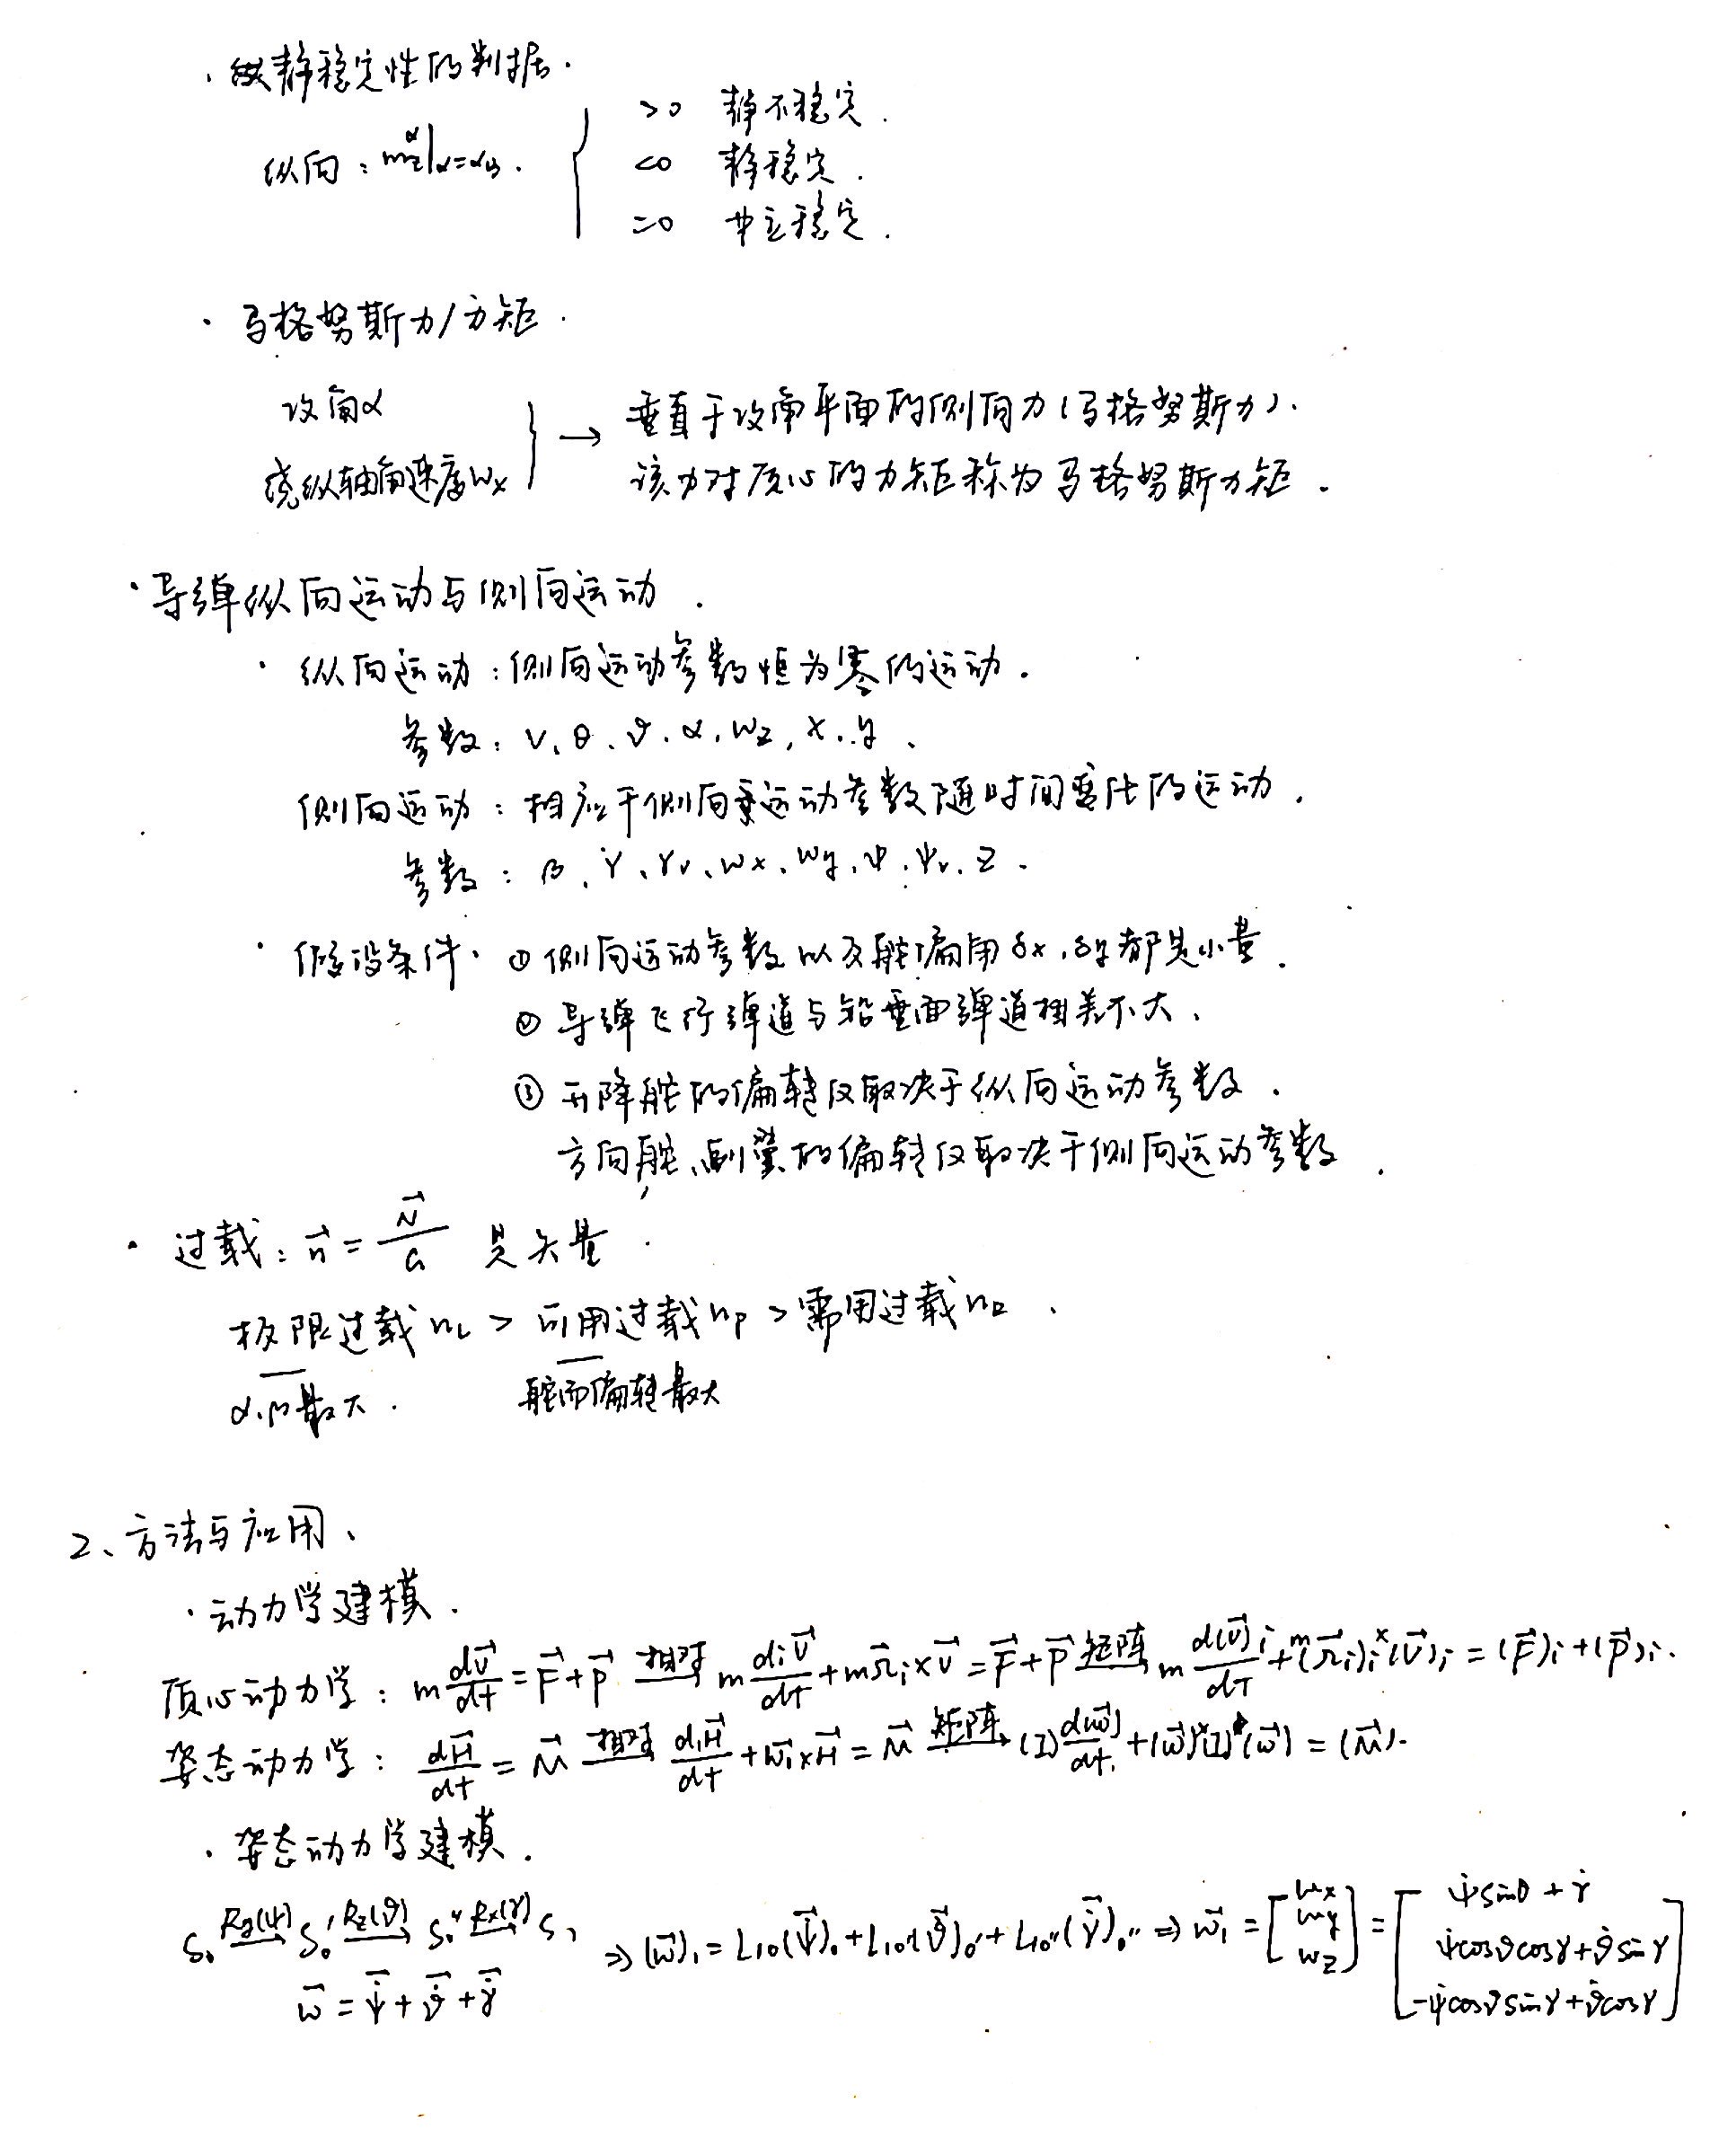 · 静稳定性的判据.
纵向: m_z^α|α=α_B. { >0 静不稳定.
<0 静稳定.
=0 中立稳定.
· 马格努斯力/力矩.
攻角α
绕纵轴角速度ωx } → 垂直于攻角平面的侧向力(马格努斯力).
该力对质心的力矩称为马格努斯力矩.
· 导弹纵向运动与侧向运动.
· 纵向运动:侧向运动参数恒为零的运动.
参数: V、θ、ϑ、α、ωz, x, y、
侧向运动:相应于侧向运动参数随时间变化的运动.
参数: β、γ、γv、ωx、ωy、ψ、ψv、z.
· 假设条件. ① 侧向运动参数以及舵偏角δx, δy都是小量.
② 导弹飞行弹道与铅垂面弹道相差不大、
③ 升降舵的偏转仅取决于纵向运动参数.
方向舵、副翼的偏转仅取决于侧向运动参数.
· 过载: n⃗ = N⃗/G 是矢量.
极限过载n_L > 可用过载n_P > 需用过载n_R.
α、β最大. 舵面偏转最大
2、方法与应用、
· 动力学建模.
质心动力学: m dv⃗/dt = F⃗+P⃗ 相对→ m d_iv⃗/dt + mΩ⃗_i×v⃗ = F⃗+P⃗ 矩阵→ m d(v⃗)_i/dt + m(Ω⃗_i)_i^×(v⃗)_i = (F⃗)_i+(P⃗)_i.
姿态动力学: dH⃗/dt = M⃗ 相对→ d₁H⃗/dt + ω⃗₁×H⃗ = M⃗ 矩阵→ (I)d(ω⃗)/dt + (ω⃗)^×(I)(ω⃗) = (M⃗).
· 姿态动力学建模.
S₀ Ry(ψ)→ S₀′ Rz(ϑ)→ S₀″ Rx(γ)→ S₁ ⇒ (ω⃗)₁ = L₁₀(ψ̇⃗)₀ + L₁₀′(ϑ̇⃗)₀′ + L₁₀″(γ̇⃗)₀″ ⇒ ω⃗₁ = [ωx ωy ωz] = [ψ̇sinϑ + γ̇
ψ̇cosϑcosγ + ϑ̇sinγ
-ψ̇cosϑsinγ + ϑ̇cosγ]
ω⃗ = ψ̇⃗ + ϑ̇⃗ + γ̇⃗